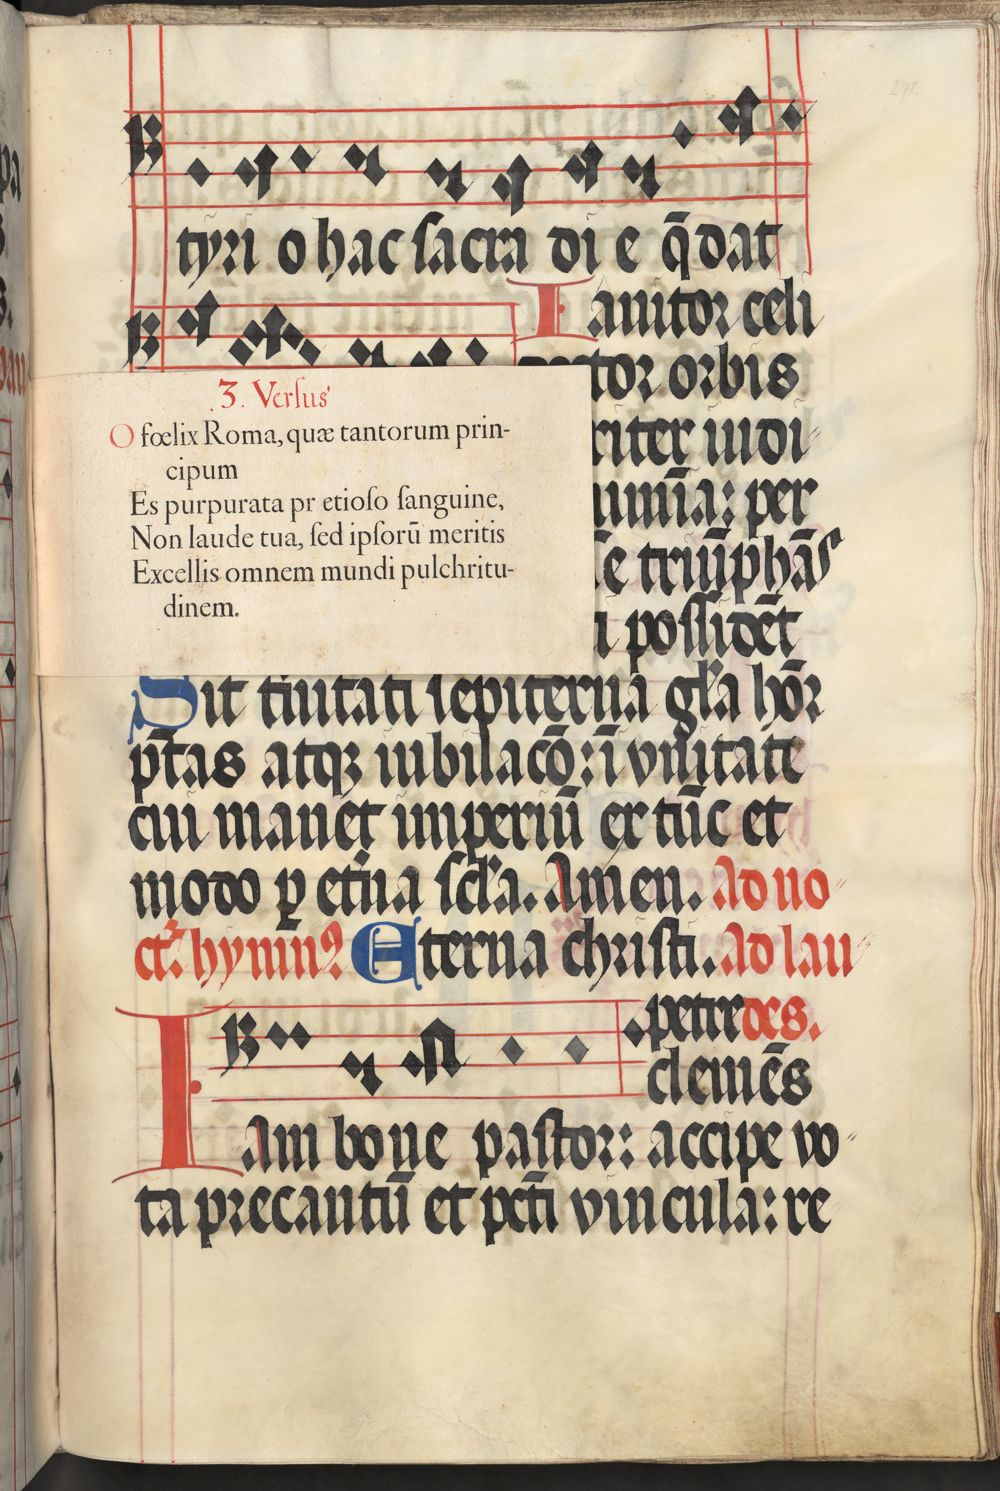 tyri o hac sacra di e q̄ dat
Ianitor celi
ctor orbis
riter iudi
umīa: per
ē triūphās
i possidēt
3. Versus
O fœlix Roma, quæ tantorum prin-
cipum
Es purpurata pr etioſo ſanguine,
Non laude tua, ſed ipſorū meritis
Excellis omnem mundi pulchritu-
dinem.
Sit trinitati sepiterna gl'a hōr
p̄tas atqꝫ iubilacō: ī vnitate
cui manet imperiū ex tūc et
modo ꝑ et̄na scl'a. Amen. Ad no
ct. hymnꝰ Eterna christi. Ad lau
des.
Iam bone pastor: petre
clemēs
accipe vo
ta precantū et pctī vincula: re